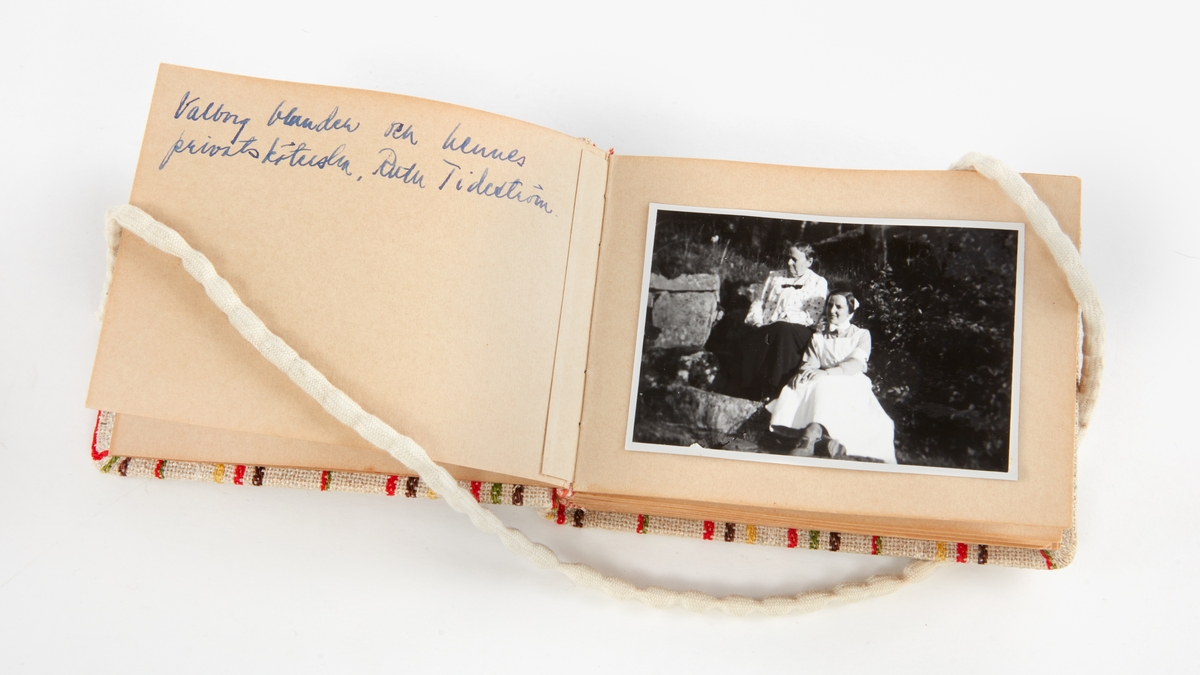 Valborg Olander och hennes
privatsköterska, Ruth Tideström.